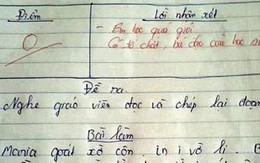 Điểm
Lời nhận xét
0
- Em học quá giỏi
Có tố chất, bá đạo
Đề ra
Nghe giáo viên đọc và chép lại đoạn
Bài làm
Mania goát xờ côn, in i vở li. B